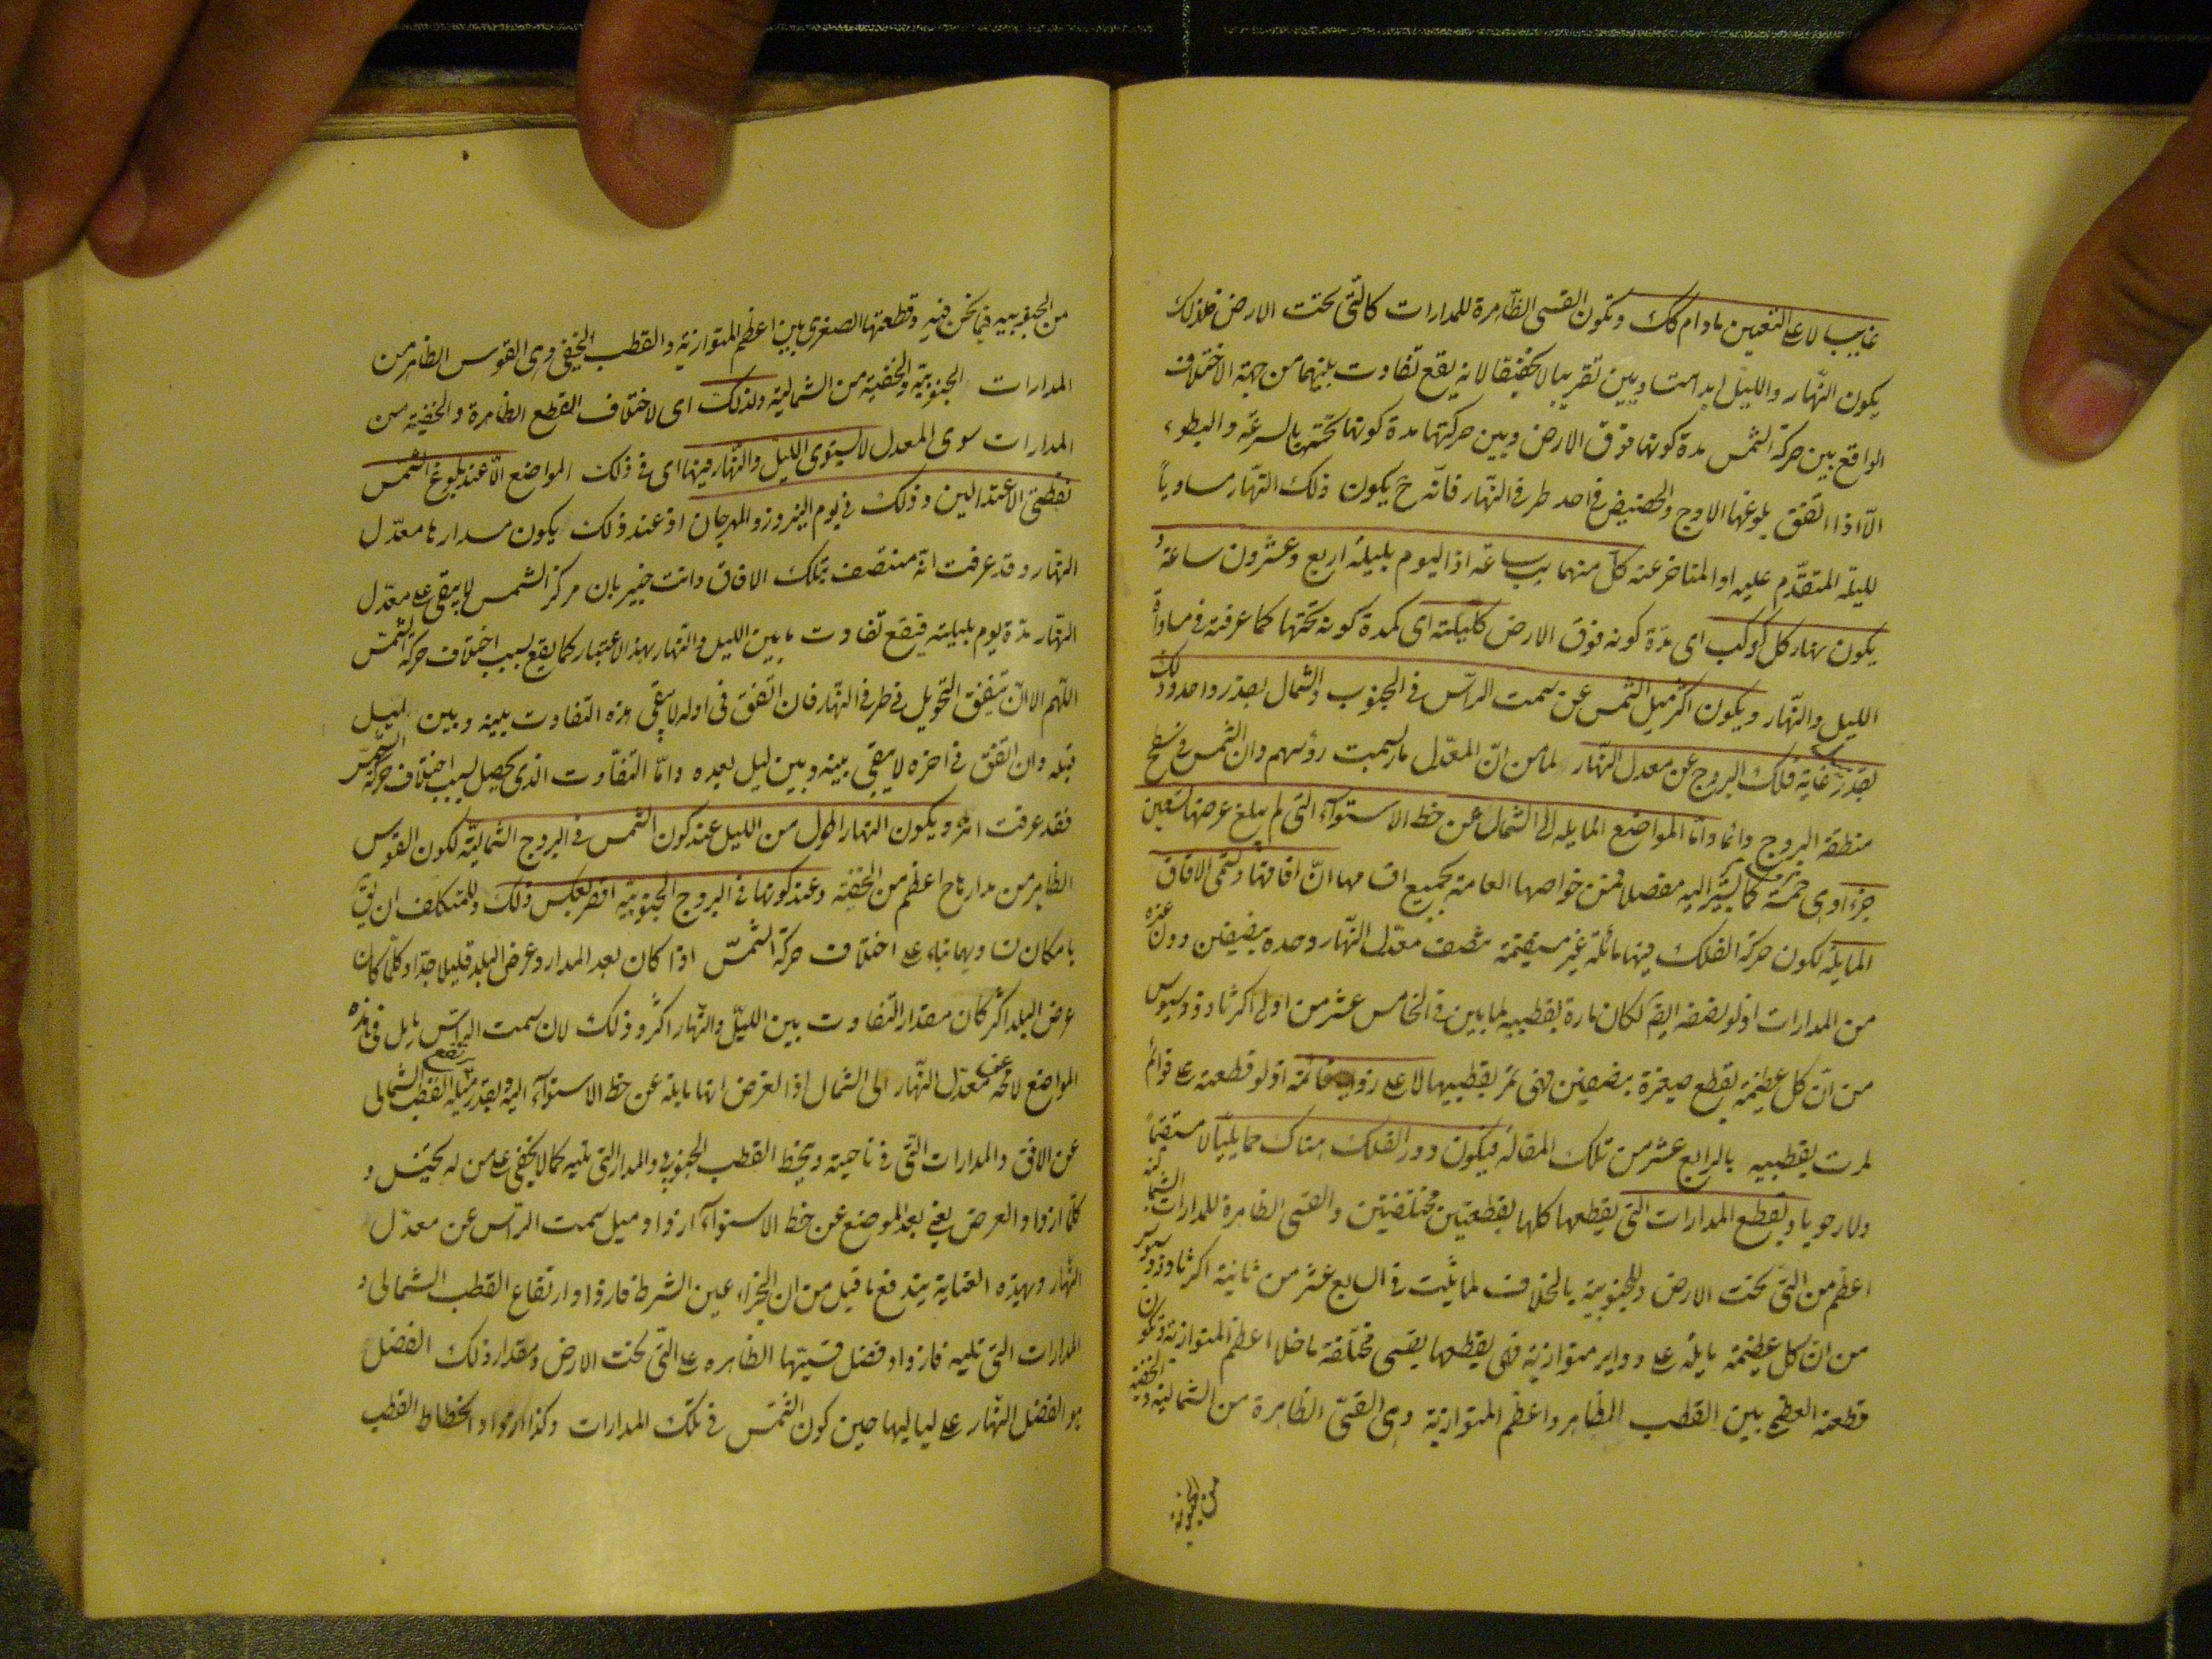 غايب لا على التعيين مادام كك وتكون القسى الظاهرة للمدارات كالتى تحت الارض فلذلك
يكون النهار والليل ابدا متساويين تقريبا لا تحقيقا لانه يقع تفاوت بينهما من جهة الاختلاف
الواقع بين حركة الشمس مدة كونها فوق الارض وبين حركتها مدة كونها تحتها بالسرعة والبطوء
الا اذا اتفق بلوغها الاوج والحضيض فى احد طرفى النهار فانه ح يكون ذلك النهار مساوياً
لليلة المتقدم عليه او المتاخر عنه كل منهما يب ساعة اذ اليوم بليلة اربع وعشرون ساعة و
يكون نهار كل كوكب اى مدة كونه فوق الارض كليلته اى كمدة كونه تحتها كما عرفته فى مساواة
الليل والنهار ويكون اكثر ميل الشمس عن سمت الراس فى الجنوب والشمال بقدر واحد وذلك
بقدر غاية فلك البروج عن معدل النهار لما من ان المعدل مار بسمت رؤسهم وان الشمس فى سطح
منطقة البروج دائما واما المواضع المايلة الى الشمال عن خط الاستواء التى لم يبلغ عرضها تسعين
جزءا وهى خمسة كما يشير اليه مفصلا فمن خواصها العامة بجميع اقسامها ان افاقها وتسمى الافاق
المايلة لكون حركة الفلك فيها مائلة غير مستقيمة تنصف معدل النهار وحده بنصفين دون غيره
من المدارات اذ لو نصفه ايضا لكان مارة بقطبيه لما بين فى الخامس عشر من اولى اكر ثاوذوسيوس
من ان كل عظيمة يقطع صغيرة بنصفين فهى تمر بقطبيها لا على زوايا قائمة اذ لو قطعته على قوائم
لمرت بقطبيه بالرابع عشر من تلك المقالة فيكون دور الفلك هناك حمايليا لا مستقيماً
ولا رحويا ويقطع المدارات التى يقطعها كلها بقطعتين مختلفتين والقسى الظاهرة للمدارات الشمالية
اعظم من التى تحت الارض وللجنوبية بالخلاف لما يثبت فى السابع عشر من ثانية اكر ثاوذوسيوس
من ان كل عظيمة مايلة على دواير متوازية فهى يقطعها بقسى مختلفة ما خلا اعظم المتوازية وتكون
قطعته العظمى بين القطب الظاهر واعظم المتوازية وهى القسى الظاهرة من الشمالية والخفية
من الجنوبية
من الجنوبيه فيما نحن فيه وقطعتها الصغرى بين اعظم المتوازية والقطب الخفى وهى القوس الظاهر من
المدارات الجنوبية والخفية من الشمالية ولذلك اى لاختلاف القطع الظاهرة والخفية من
المدارات سوى المعدل لا يستوى الليل والنهار فيها اى فى ذلك المواضع الا عند بلوغ الشمس
نقطتى الاعتدالين وذلك فى يوم النيروز والمهرجان اذ عند ذلك يكون مدارها معدل
النهار وقد عرفت انه منتصف بتلك الافاق وانت خبير بان مركز الشمس لا يبقى على معدل
النهار مدة يوم بليلته فيقع تفاوت ما بين الليل والنهار بهذا الاعتبار كما يقع بسبب اختلاف حركة الشمس
اللهم الا ان يتفق التحويل فى طرفى النهار فان اتفق فى اوله لا يبقى هذه التفاوت بينه وبين ليل
قبله وان اتفق فى اخره لا يبقى بينه وبين ليل بعده واما التفاوت الذى يحصل بسبب اختلاف حركة الشمس
فقد عرفت امره ويكون النهار اطول من الليل عند كون الشمس فى البروج الشمالية لكون القوس
الظاهر من مدارها ح اعظم من الخفية وعند كونها فى البروج الجنوبية اقصر بعكس ذلك وللمتكلف ان يق
بامكان تساويهما بناء على اختلاف حركة الشمس اذا كان بعد المدار وعرض البلد قليلا جدا وكلما كان
عرض البلد اكثر كان مقدار التفاوت بين الليل والنهار اكثر وذلك لان سمت الراس مايل فى هذه
المواضع لا محة عن معدل النهار الى الشمال اذ الغرض انها مايلة عن خط الاستواء اليه وبقدر ميله يرتفع القطب الشمالى
عن الافق والمدارات التى فى ناحيته وينحط القطب الجنوبى والمدار التى يليه كما لا يخفى على من له تخيل و
كلما ازداد العرض يعنى بعد الموضع عن خط الاستواء ازداد ميل سمت الراس عن معدل
النهار وبهذه العناية يندفع ما قيل من ان الجزاء عين الشرط فازداد ارتفاع القطب الشمالى و
المدارات التى تليه فازداد فضل قسيتها الظاهره على التى تحت الارض ومقدار ذلك الفضل
هو الفضل النهار على لياليها حين كون الشمس فى تلك المدارات وكذا ازداد انحطاط القطب